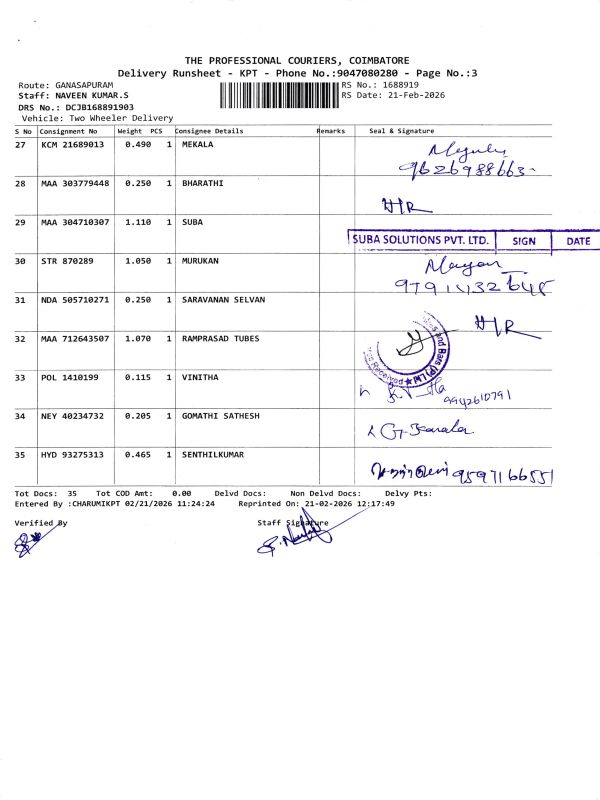 THE PROFESSIONAL COURIERS, COIMBATORE
Delivery Runsheet - KPT - Phone No.:9047080280 - Page No.:3
Route: GANASAPURAM
RS No.: 1688919
Staff: NAVEEN KUMAR.S
RS Date: 21-Feb-2026
DRS No.: DCJB168891903
Vehicle: Two Wheeler Delivery
S No Consignment No Weight PCS Consignee Details Remarks Seal & Signature
27 KCM 21689013 0.490 1 MEKALA
9626988663
28 MAA 303779448 0.250 1 BHARATHI
H/R
29 MAA 304710307 1.110 1 SUBA
SUBA SOLUTIONS PVT. LTD. SIGN DATE
30 STR 870289 1.050 1 MURUKAN
31 NDA 505710271 0.250 1 SARAVANAN SELVAN
H/R
32 MAA 712643507 1.070 1 RAMPRASAD TUBES
and Bars (P) Ltd
Received
33 POL 1410199 0.115 1 VINITHA
9942610791
34 NEY 40234732 0.205 1 GOMATHI SATHESH
35 HYD 93275313 0.465 1 SENTHILKUMAR
9597166551
Tot Docs: 35 Tot COD Amt: 0.00 Delvd Docs: Non Delvd Docs: Delvy Pts:
Entered By :CHARUMIKPT 02/21/2026 11:24:24 Reprinted On: 21-02-2026 12:17:49
Verified By Staff Signature